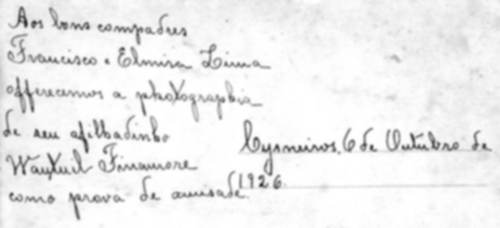 Aos bons compadres
Francisco e Elmisa Lima
offerecemos a photographia
de seu afilhadinho
Waytuil Finamore
como prova de amisade.
Cysneiros, 6 de Outubro de
1926.